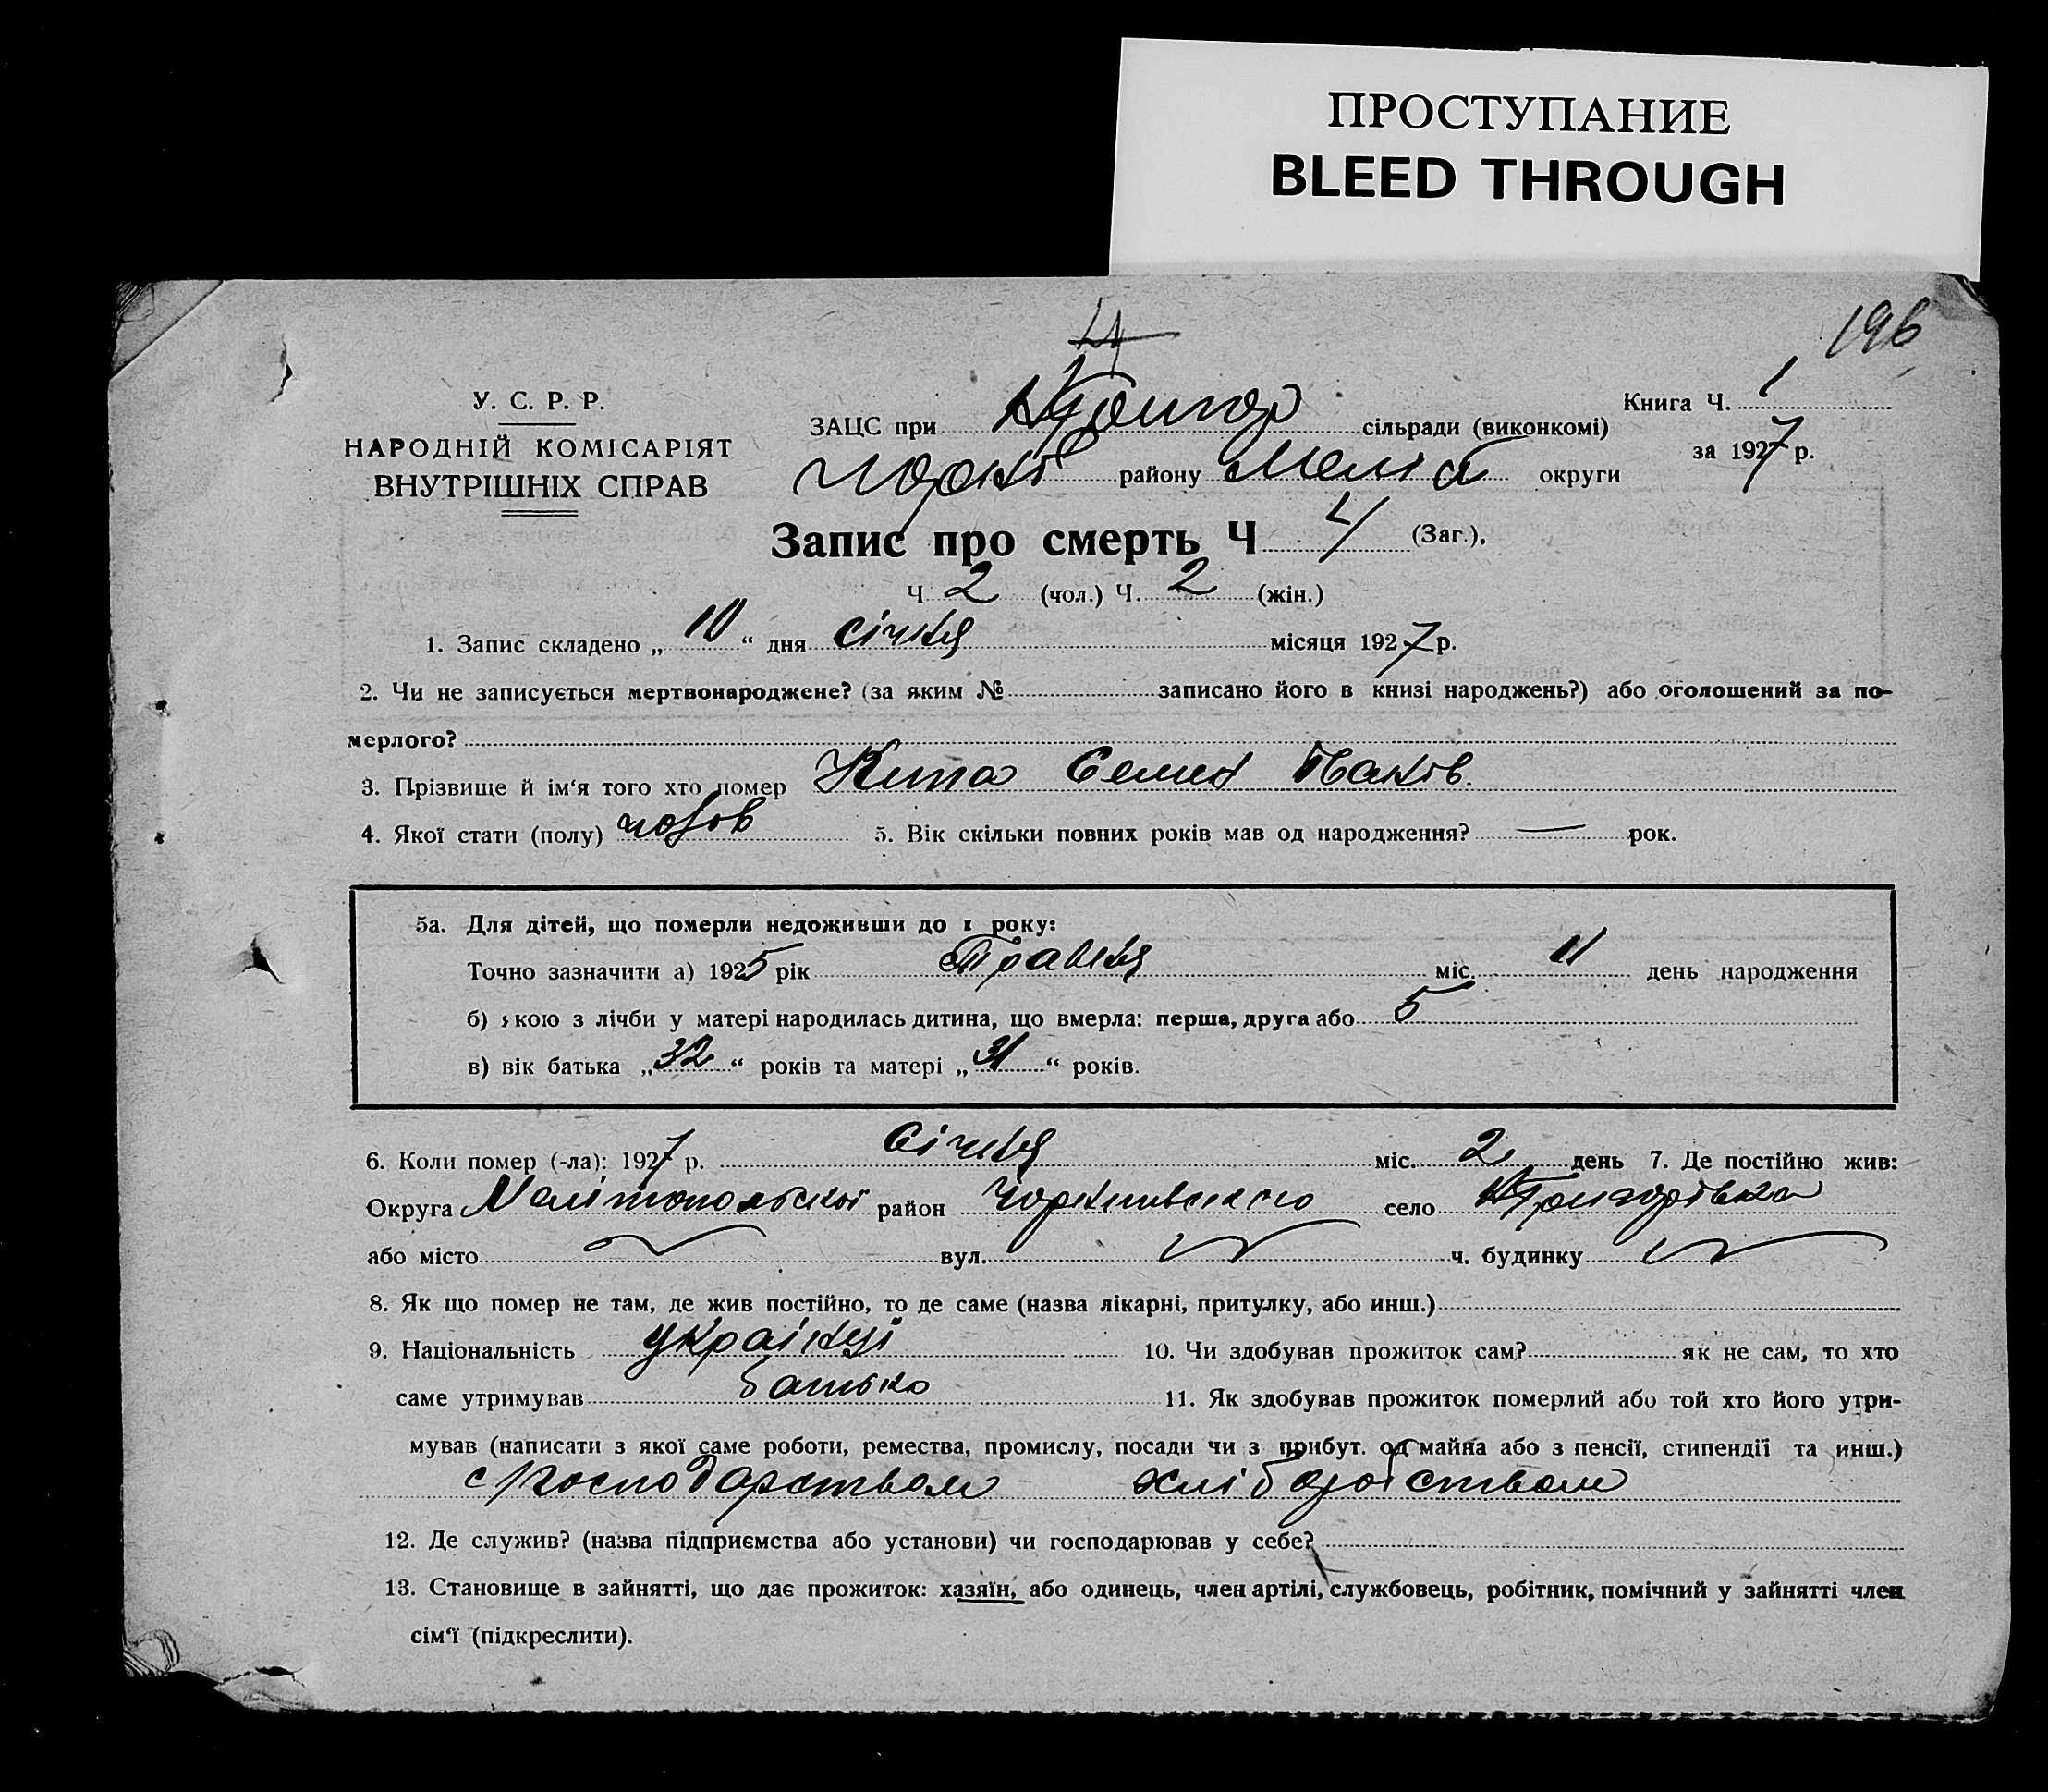 ПРОСТУПАНИЕ
BLEED THROUGH
196
У. С. Р. Р.
НАРОДНІЙ КОМІСАРІЯТ
ВНУТРІШНІХ СПРАВ
Книга Ч. 1
за 1927 р.
ЗАЦС при сільради (виконкомі)
району Меліт округи
Запис про смерть Ч 4 (Заг.),
Ч 2 (чол.) Ч. 2 (жін.)
1. Запис складено „ 10 “ дня січня місяця 1927 р.
2. Чи не записується мертвонароджене? (за яким № записано його в книзі народжень?) або оголошений за по-
мерлого?
3. Прізвище й ім‘я того хто помер Кипа Семен
4. Якої стати (полу) чолов 5. Вік скільки повних років мав од народження? — рок.
5а. Для дітей, що померли недоживши до 1 року:
Точно зазначити а) 1925 рік Травня міс. 11 день народження
б) якою з лічби у матері народилась дитина, що вмерла: перша, друга або 5
в) вік батька „ 32 “ років та матері „ 31 “ років.
6. Коли помер (-ла): 1927 р. Січня міс. 2 день 7. Де постійно жив:
Округа Мелітопольскої район село
або місто вул. ч. будинку
8. Як що помер не там, де жив постійно, то де саме (назва лікарні, притулку, або инш.)
9. Національність українці 10. Чи здобував прожиток сам? як не сам, то хто
саме утримував батько 11. Як здобував прожиток померлий або той хто його утри-
мував (написати з якої саме роботи, ремества, промислу, посади чи з прибут. од майна або з пенсії, стипендії та инш.)
с господарством хліборобством
12. Де служив? (назва підприємства або установи) чи господарював у себе?
13. Становище в зайнятті, що дає прожиток: хазяїн, або одинець, член артілі, службовець, робітник, помічний у зайнятті член
сім‘ї (підкреслити).